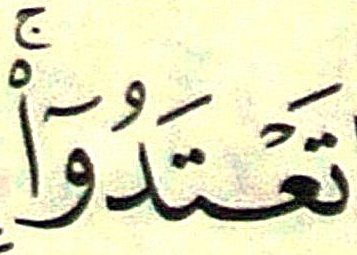 تَعْتَدُوٓا۟ۚ